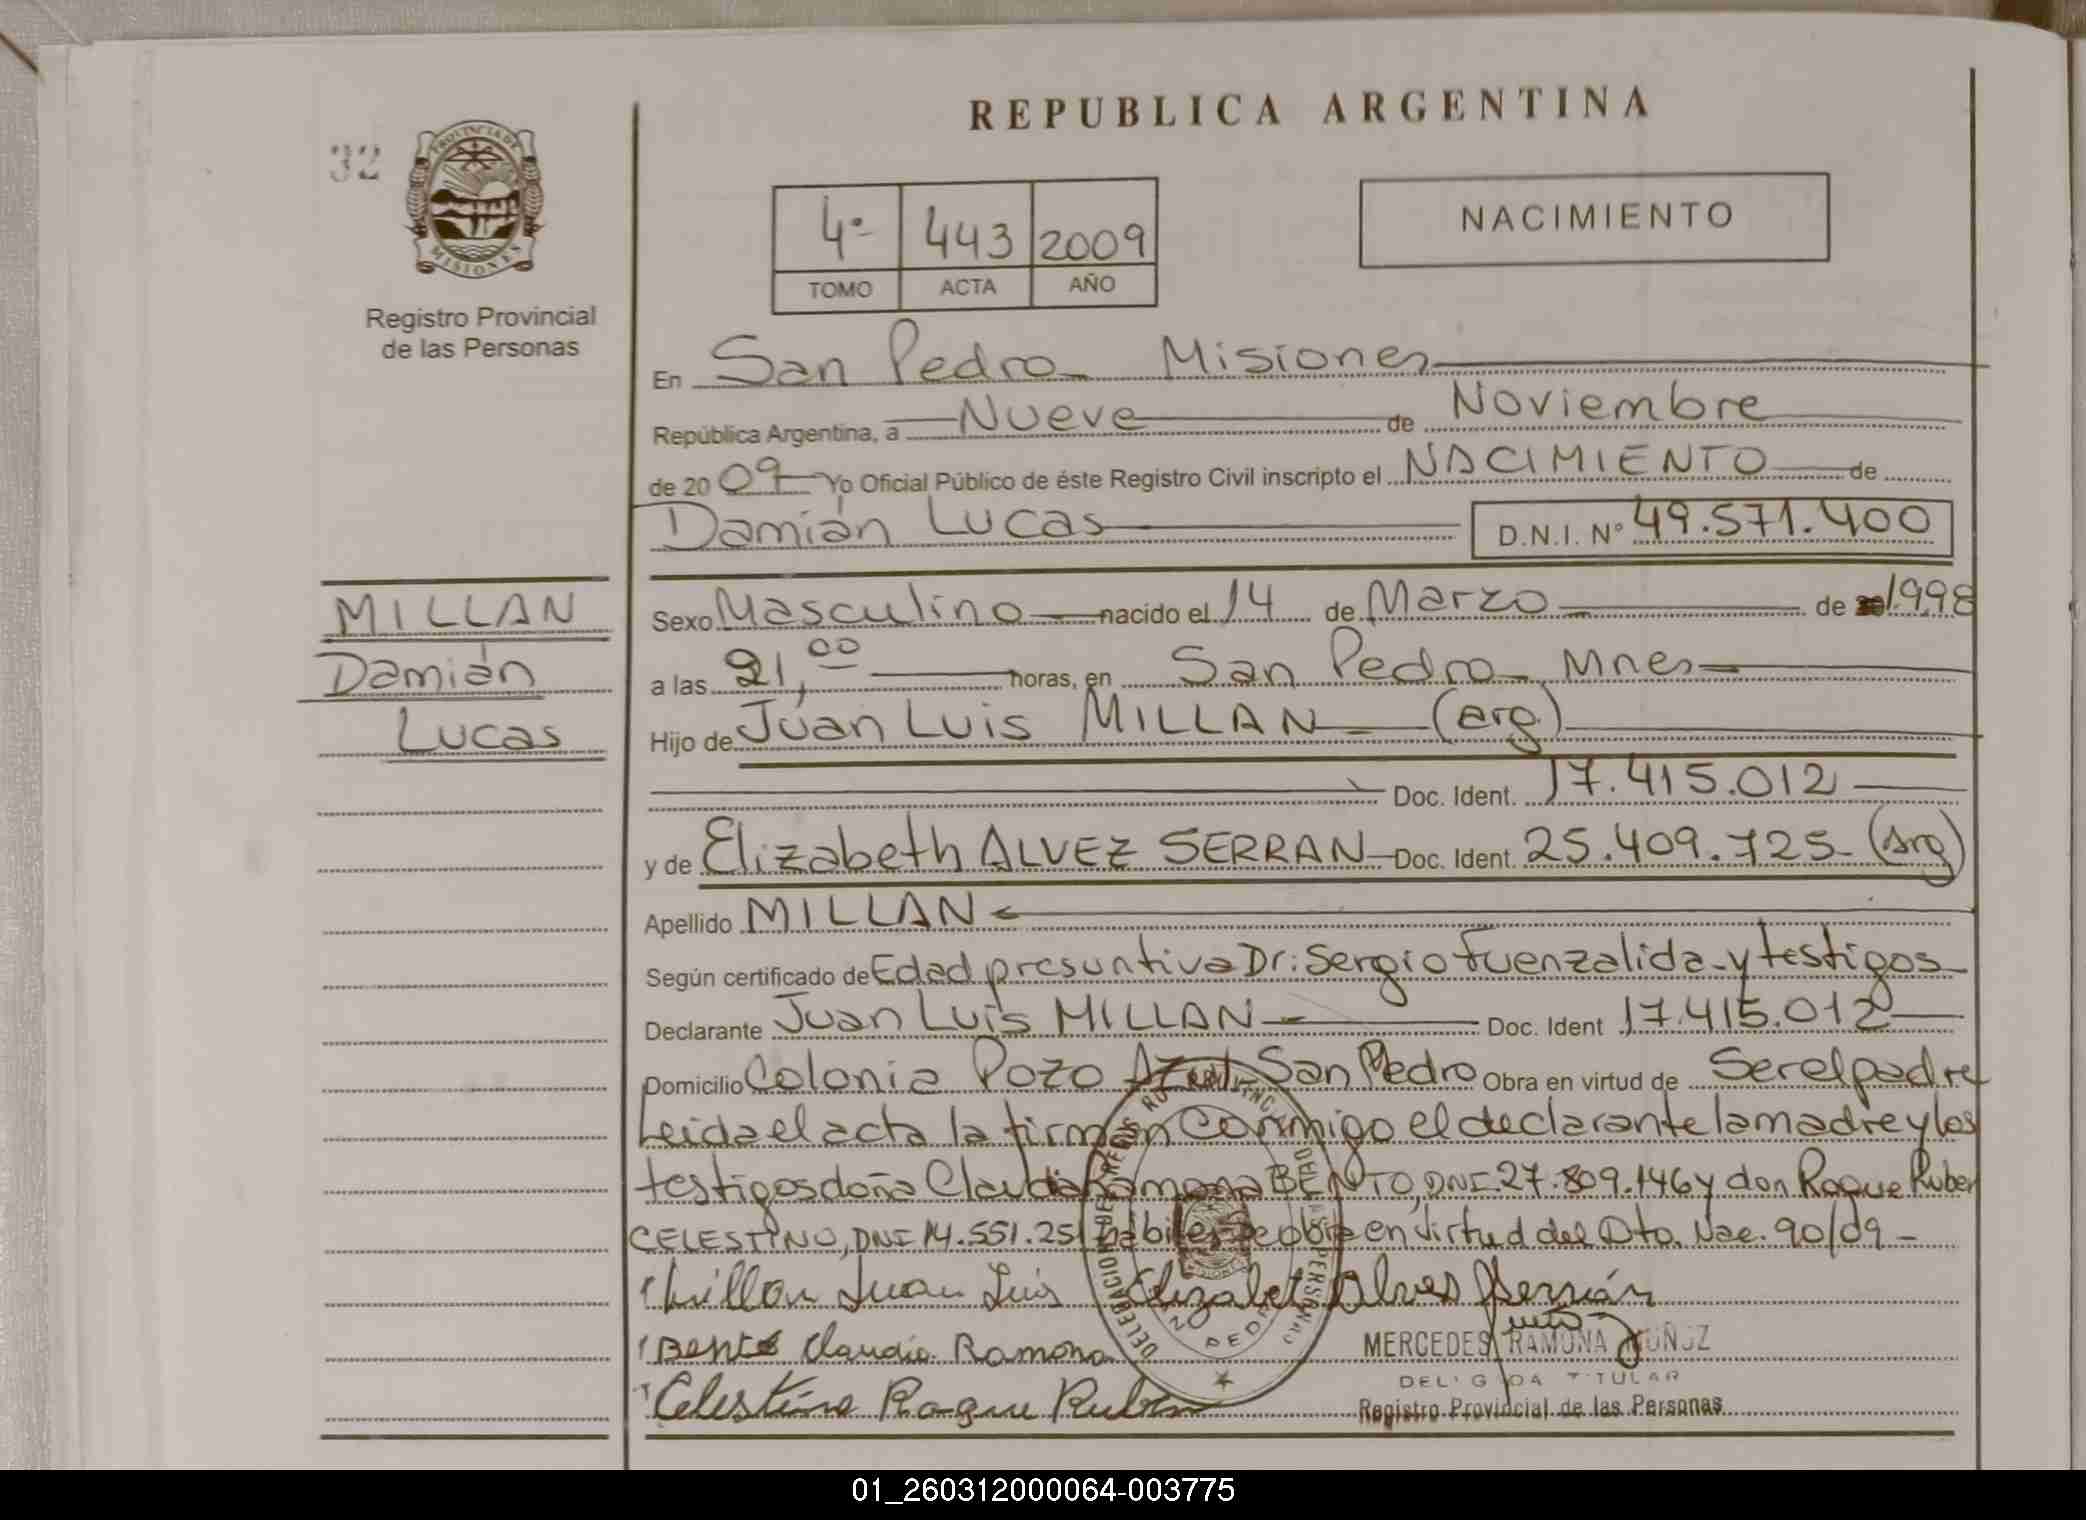 REPUBLICA ARGENTINA
32
PROVINCIA DE
MISIONES
Registro Provincial
de las Personas
4º 443 2009
TOMO ACTA AÑO
NACIMIENTO
En San Pedro - Misiones
República Argentina, a Nueve de Noviembre
de 2009 Yo Oficial Público de éste Registro Civil inscripto el NACIMIENTO de
Damián Lucas D.N.I. Nº 49.571.400
MILLAN
Damián
Lucas
Sexo Masculino nacido el 14 de Marzo de 1998
a las 21,00 horas, en San Pedro - Mnes
Hijo de Juan Luis MILLAN (arg.)
Doc. Ident. 17.415.012
y de Elizabeth ALVEZ SERRAN Doc. Ident. 25.409.725 - (Arg)
Apellido MILLAN
Según certificado de Edad presuntiva Dr: Sergio Fuenzalida - y testigos
Declarante Juan Luis MILLAN Doc. Ident 17.415.012
Domicilio Colonia Pozo Azul San Pedro Obra en virtud de Ser el padre
Leida el acta la firman conmigo el declarante la madre y los
testigos doña Claudia Ramona BENTO, DNI. 27.809.146 y don Roque Ruben
CELESTINO, DNI 14.551.251 hábiles Se obra en virtud del Dto. Nac. 90/09 -
Millan Juan Luis Elizabet Alves Serrán
Bento Claudia Ramona
Celestino Roque Ruben
MERCEDES RAMONA MUÑOZ
DELEGADA TITULAR
Registro Provincial de las Personas
01_260312000064-003775